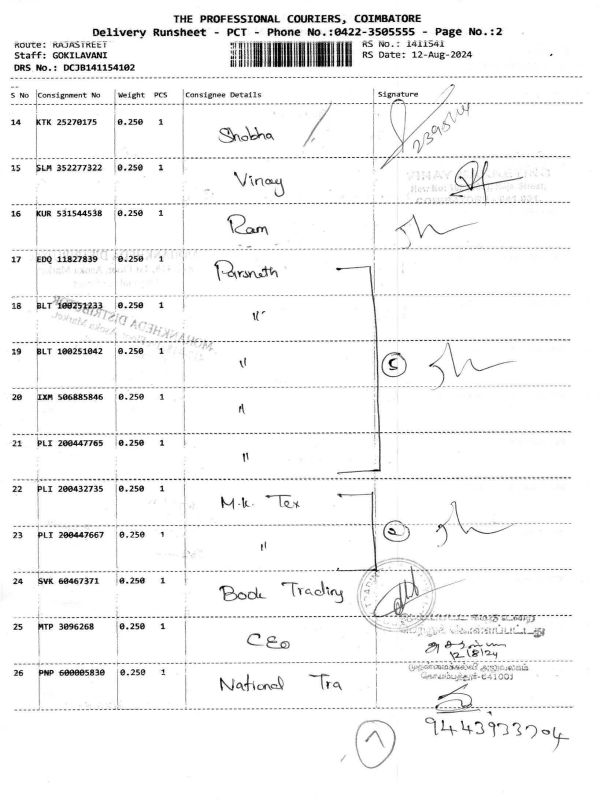 THE PROFESSIONAL COURIERS, COIMBATORE
Delivery Runsheet - PCT - Phone No.:0422-3505555 - Page No.:2
Route: RAJASTREET RS No.: 1411541
Staff: GOKILAVANI RS Date: 12-Aug-2024
DRS No.: DCJB141154102
S No Consignment No Weight PCS Consignee Details Signature
14 KTK 25270175 0.250 1 Shobha
15 SLM 352277322 0.250 1 Vinay
16 KUR 531544538 0.250 1 Ram
17 EDQ 11827839 0.250 1 Parsneth
18 BLT 100251233 0.250 1 "
19 BLT 100251042 0.250 1 " 5
20 IXM 506885846 0.250 1 "
21 PLI 200447765 0.250 1 "
22 PLI 200432735 0.250 1 M.K. Tex
23 PLI 200447667 0.250 1 " 2
24 SVK 60467371 0.250 1 Book Trading
25 MTP 3096268 0.250 1 CEO
12/8/24
26 PNP 600005830 0.250 1 National Tra
கோயம்புத்தூர்-641001
9443933704